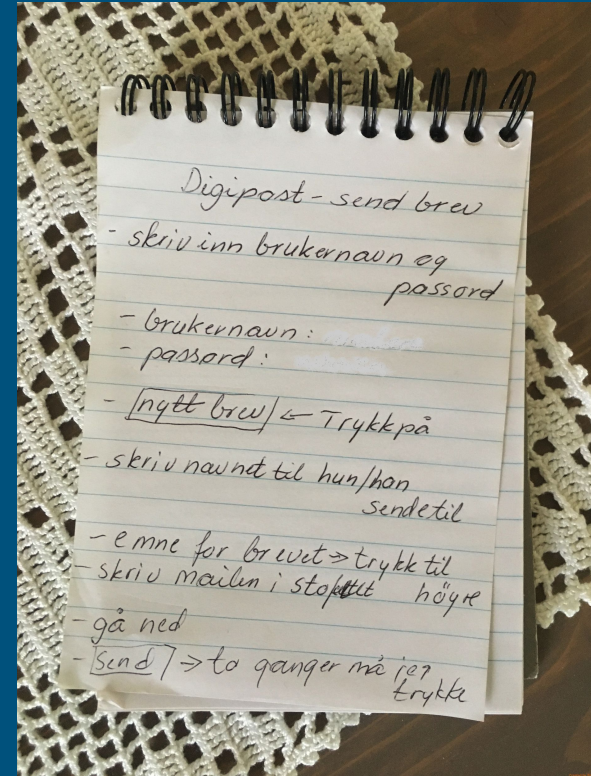 Digipost - send brev
- skriv inn brukernavn og
passord
- brukernavn:
- passord:
- nytt brev ← Trykk på
- skriv navnet til hun/han
sende til
- emne for brevet ⇒ trykk til
høyre
- skriv mailen i
- gå ned
- send ⇒ to ganger må jeg
trykke